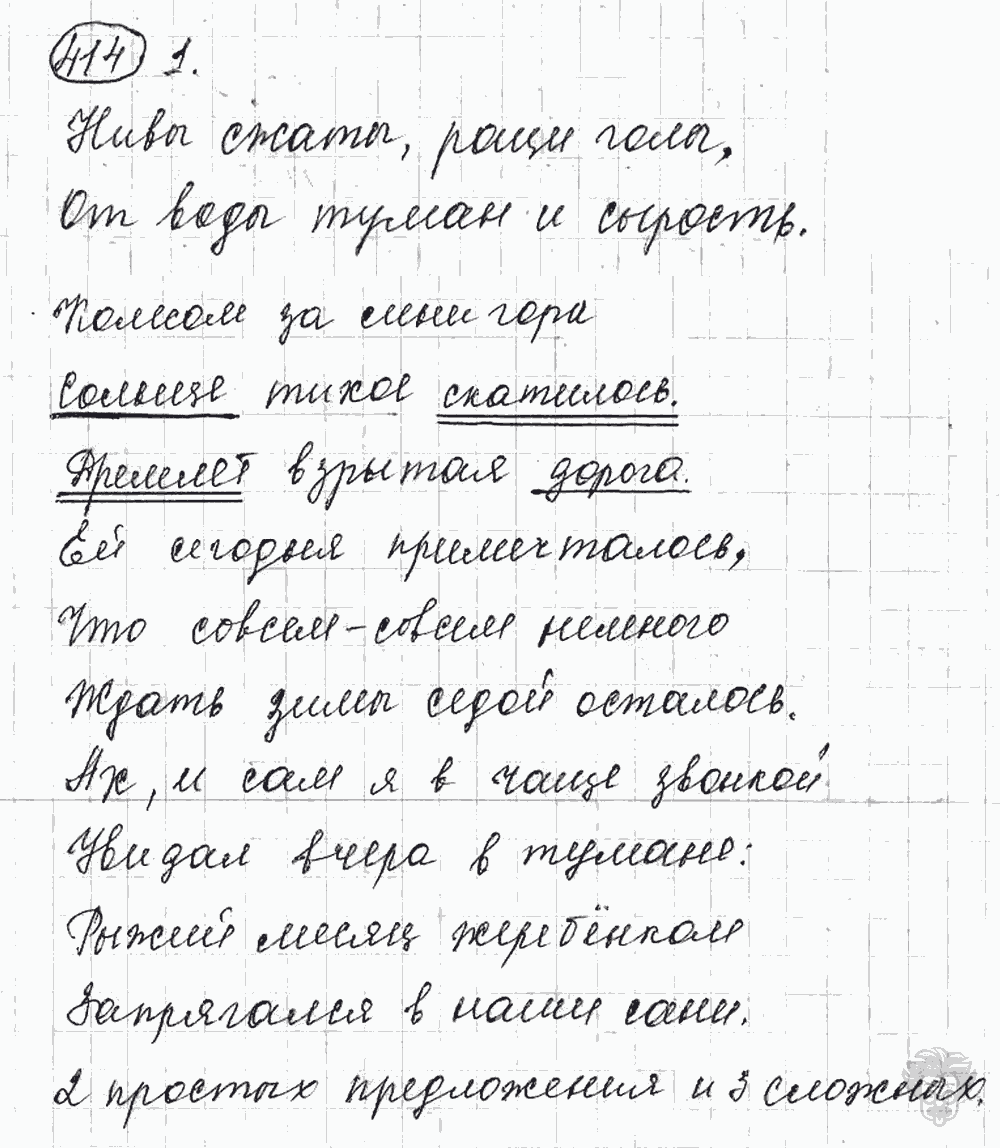 414 1.
Нивы сжаты, рощи голы,
От воды туман и сырость.
Колесом за сини горы
Солнце тихое скатилось.
Дремлет взрытая дорога.
Ей сегодня примечталось,
Что совсем-совсем немного
Ждать зимы седой осталось.
Ах, и сам я в чаще звонкой
Увидал вчера в тумане:
Рыжий месяц жеребёнком
Запрягался в наши сани.
2 простых предложения и 3 сложных.